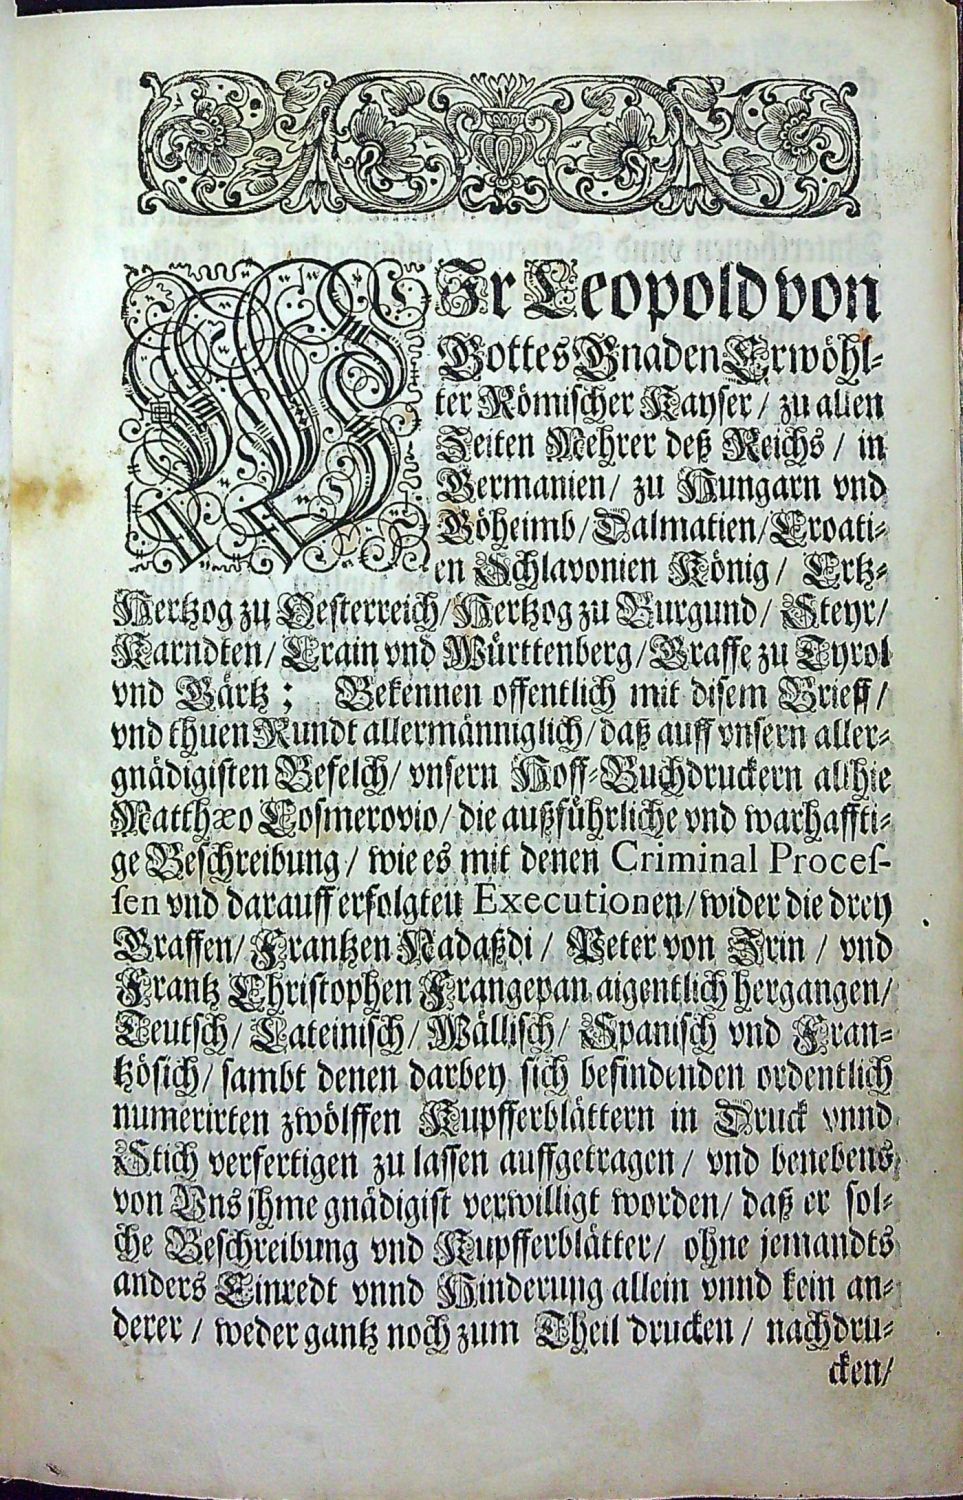 WIr Leopold von
Gottes Gnaden Erwöhl-
ter Römischer Kayser / zu allen
Zeiten Mehrer deß Reichs / in
Germanien / zu Hungarn vnd
Böheimb / Dalmatien / Croati-
en Schlavonien König / Ertz-
Hertzog zu Oesterreich / Hertzog zu Burgund / Steyr /
Karndten / Crain vnd Württenberg / Graffe zu Tyrol
vnd Gärtz ; Bekennen offentlich mit disem Brieff /
vnd thuen Kundt allermänniglich / daß auff vnsern aller-
gnädigisten Befelch / vnsern Hoff-Buchdruckern allhie
Matthæo Cosmerovio / die außführliche vnd warhaffti-
ge Beschreibung / wie es mit denen Criminal Proces-
sen vnd darauff erfolgten Executionen / wider die drey
Graffen / Frantzen Nadaßdi / Peter von Zrin / vnd
Frantz Christophen Frangepan aigentlich hergangen /
Teutsch / Lateinisch / Wällisch / Spanisch vnd Fran-
tzösich / sambt denen darbey sich befindenden ordentlich
numerirten zwölffen Kupfferblättern in Druck vnnd
Stich verfertigen zu lassen auffgetragen / vnd benebens
von Vns jhme gnädigist verwilligt worden / daß er sol-
che Beschreibung vnd Kupfferblätter / ohne jemandts
anders Einredt vnnd Hinderung allein vnnd kein an-
derer / weder gantz noch zum Theil drucken / nachdru-
cken /